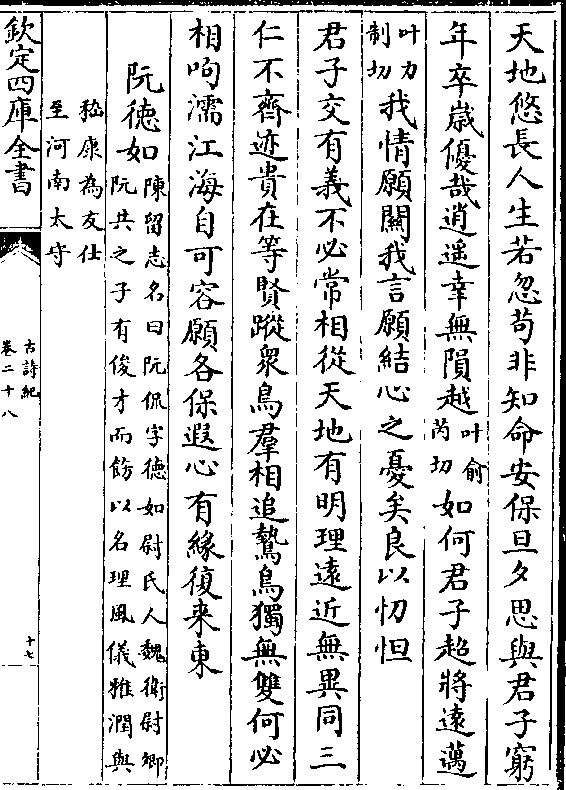 天地悠長人生若忽苟非知命安保旦夕思與君子窮
年卒嵗優哉逍遥幸無隕越叶俞芮切如何君子超將遠邁
叶力制切我情願關我言願結心之憂矣良以忉怛
君子交有義不必常相從天地有明理遠近無異同三
仁不齊迹貴在等賢蹤衆鳥羣相追鷙鳥獨無雙何必
相呴濡江海自可容願各保遐心有緣復来東
阮徳如陳留志名曰阮侃字徳如尉氏人魏衛尉卿阮共之子有俊才而飭以名理風儀雅潤與
嵇康為友仕至河南太守
欽定四庫全書
古詩紀
卷二十八
十七